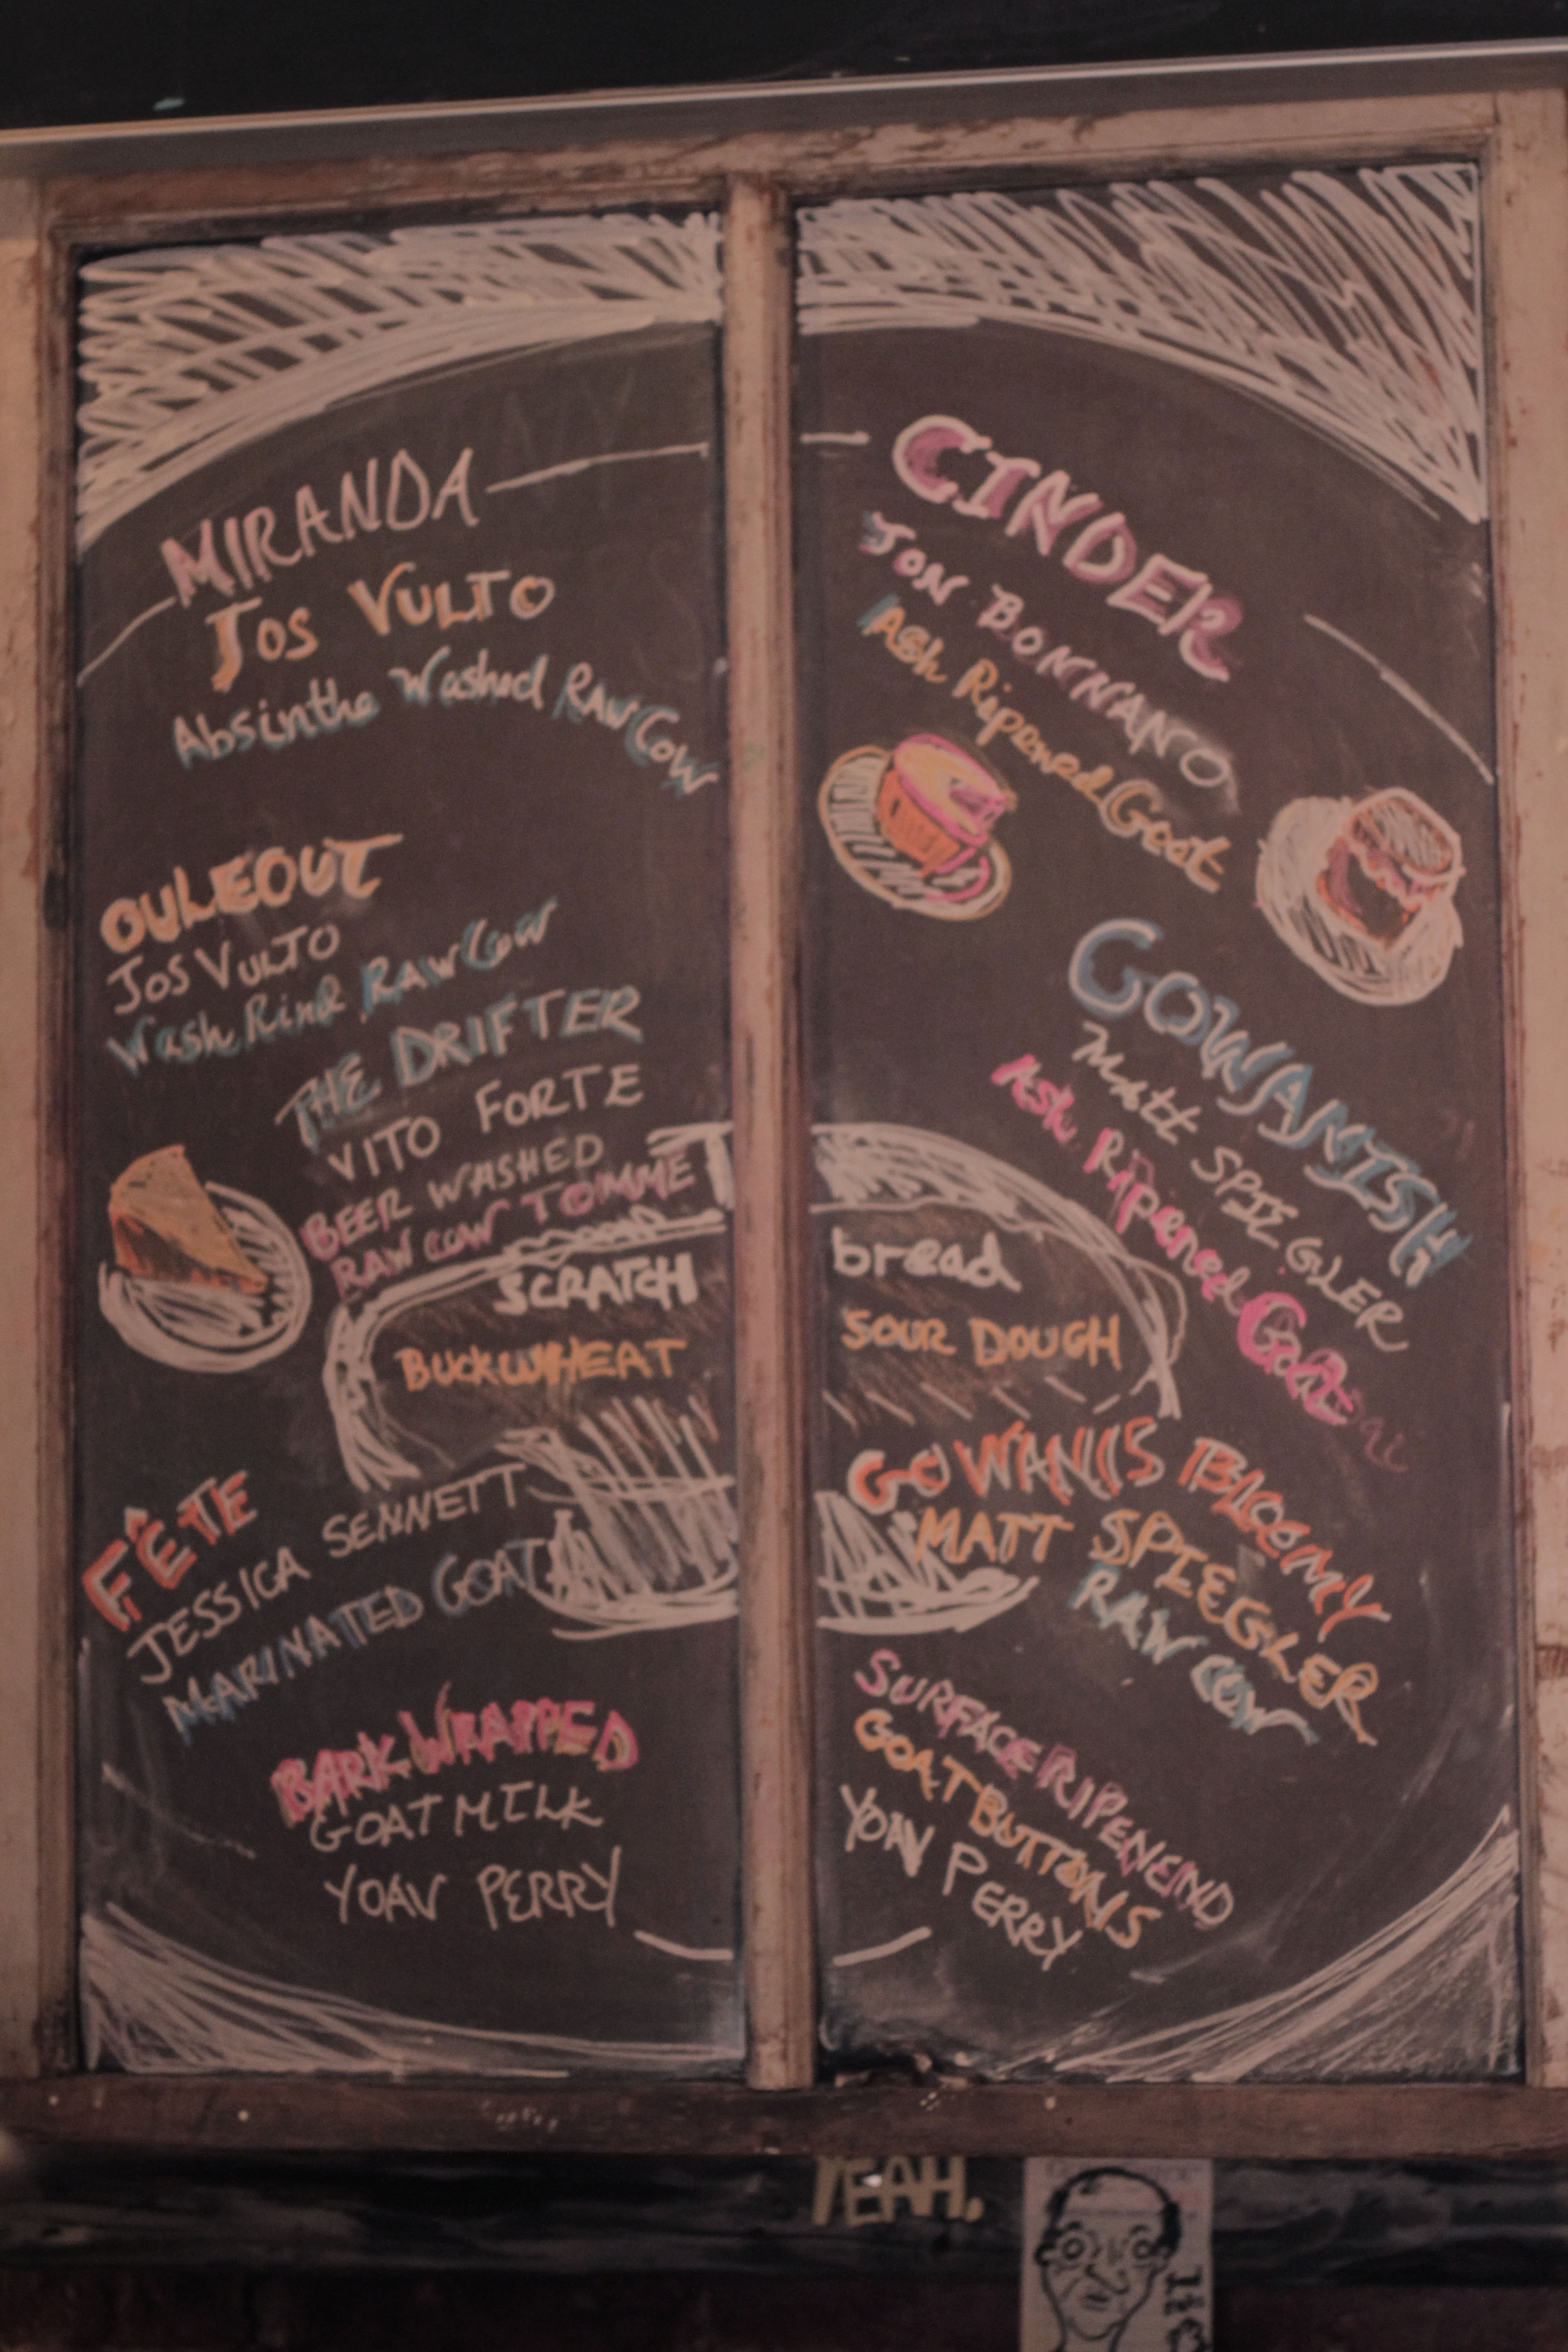 MIRANDA
JOS VULTO
Absinthe Washed RAW COW
OULEOUT
JOS VULTO
Wash Rind RAW Cow
THE DRIFTER
VITO FORTE
BEER WASHED
RAW COW TOMME
SCRATCH
BUCKWHEAT
FÊTE
JESSICA SENNETT
MARINATED GOAT
BARK WRAPPED
GOAT MILK
YOAV PERRY
CINDER
JON BONNANO
Ash Ripened Goat
GOWANISH
Matt SPIEGLER
Ash Ripened Goat
bread
SOUR DOUGH
GOWANUS BLOOMY
MATT SPIEGLER
RAW COW
SURFACE RIPENEND
GOAT BUTTONS
YOAV PERRY
YEAH.